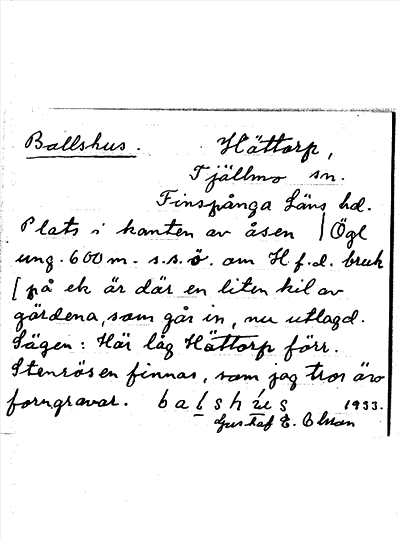 Ballshus. Hättorp,
Tjällmo sn.
Finspånga Läns hd.
Plats i kanten av åsen | Ögl
ung. 600 m. s.s.ö. om H f.d. bruk
[på ek är där en liten kil av
gärdena, som går in, nu utlagd.
Sägen: Här låg Hättorp förr.
Stenrösen finnas, som jag tror äro
forngravar. balshus 1933.
Gustaf E. Olsson